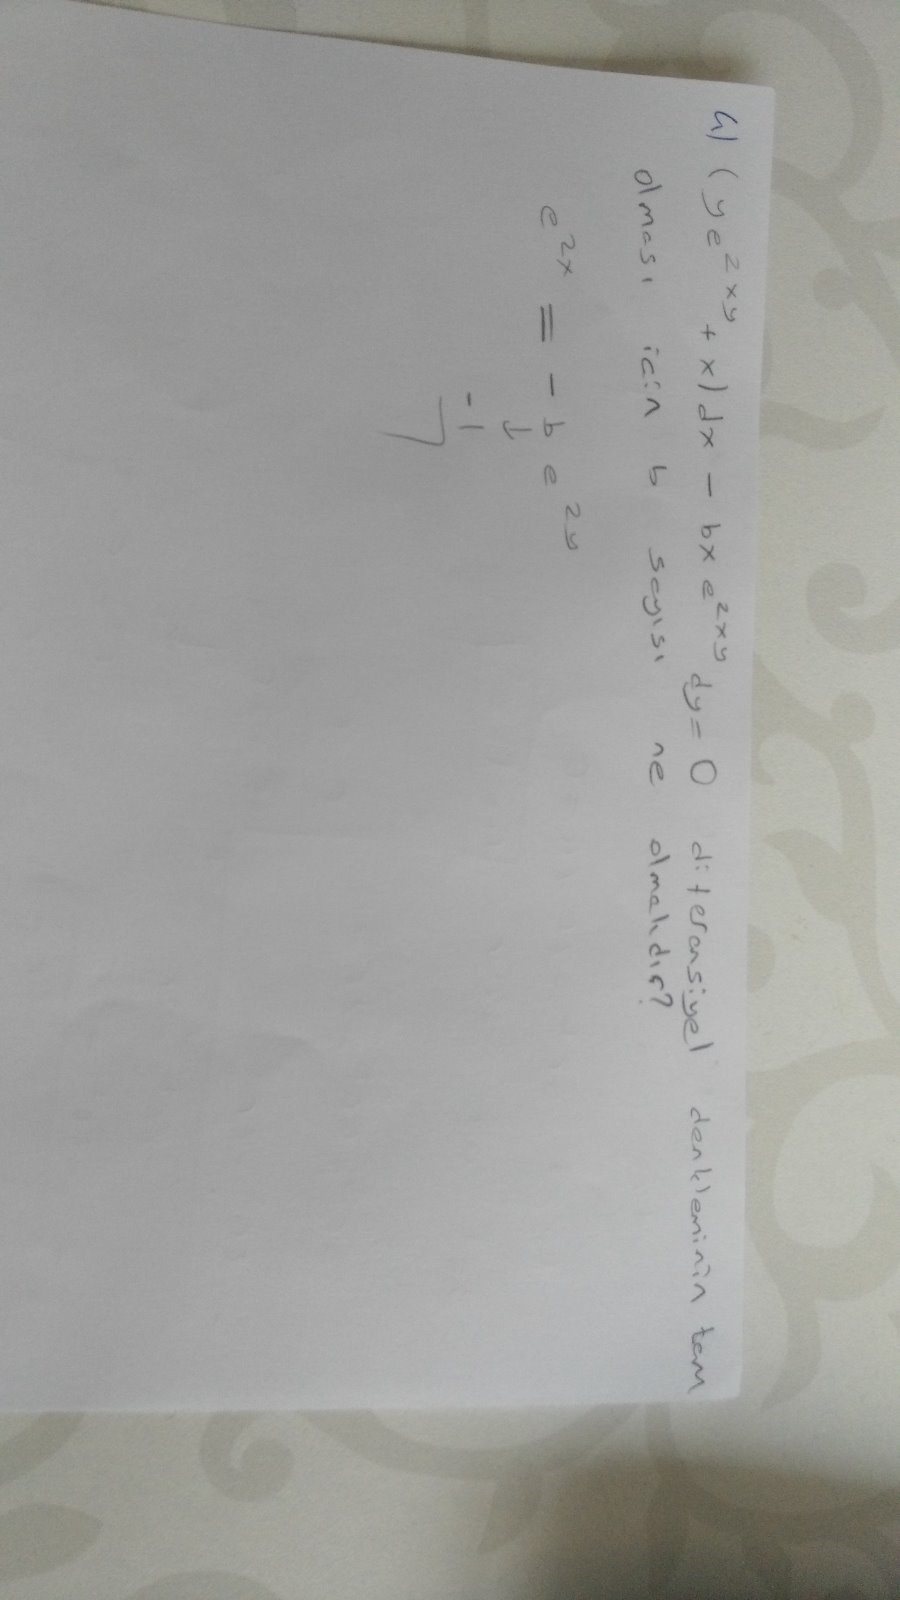 4) (ye^{2xy} + x) dx - bx e^{2xy} dy = 0 diferansiyel denkleminin tam
olması için b sayısı ne olmalıdır?
e^{2x} = - b e^{2y}
↓
-1